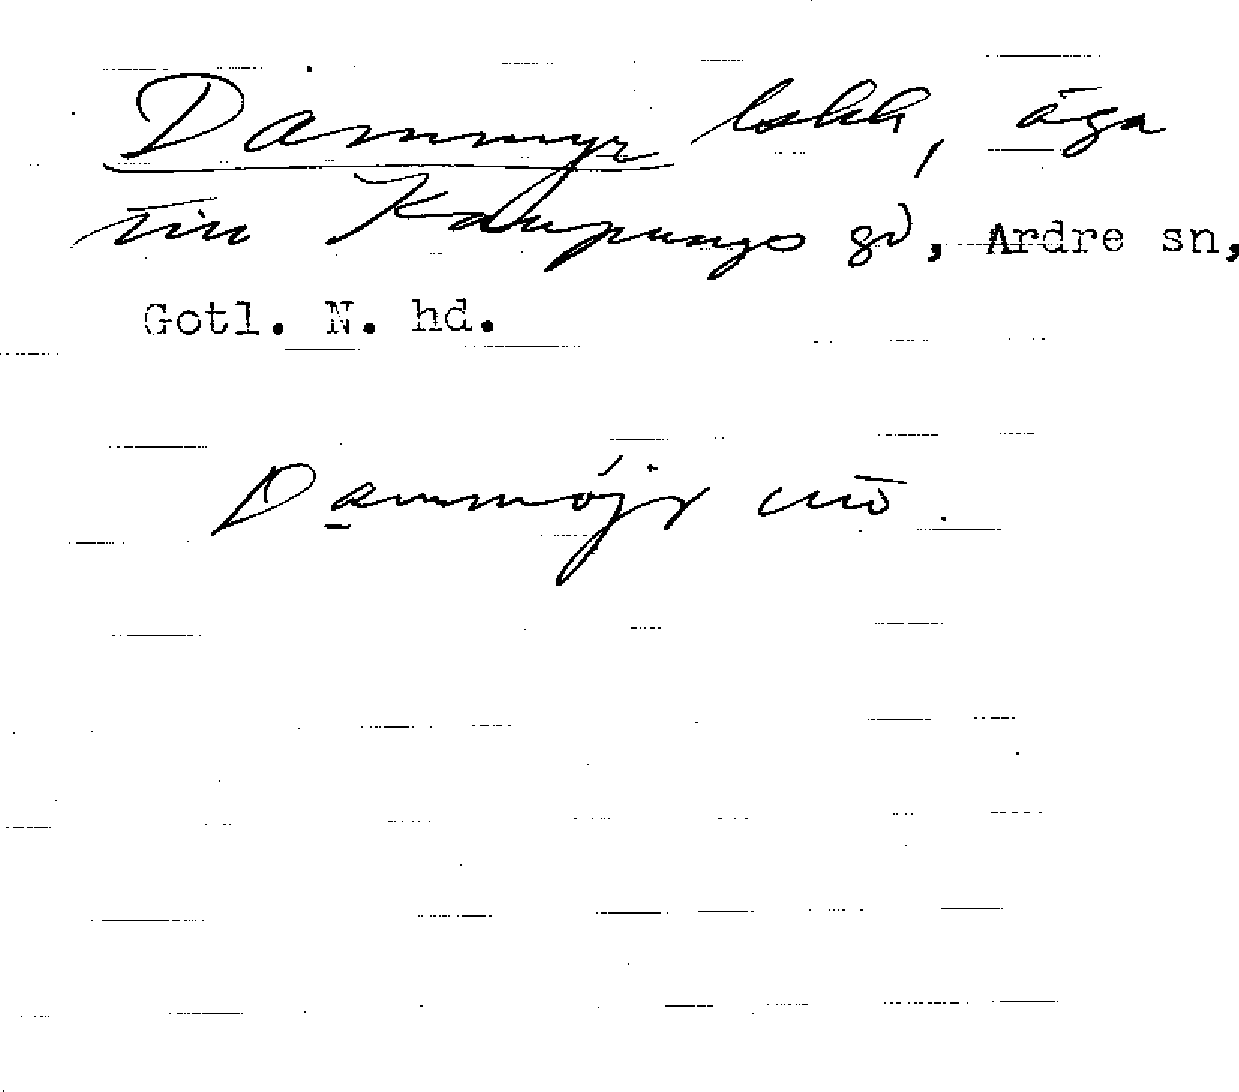 Dammyr lokk, äga
till Kaupungs gd, Ardre sn,
Gotl. N. hd.
Dammójr